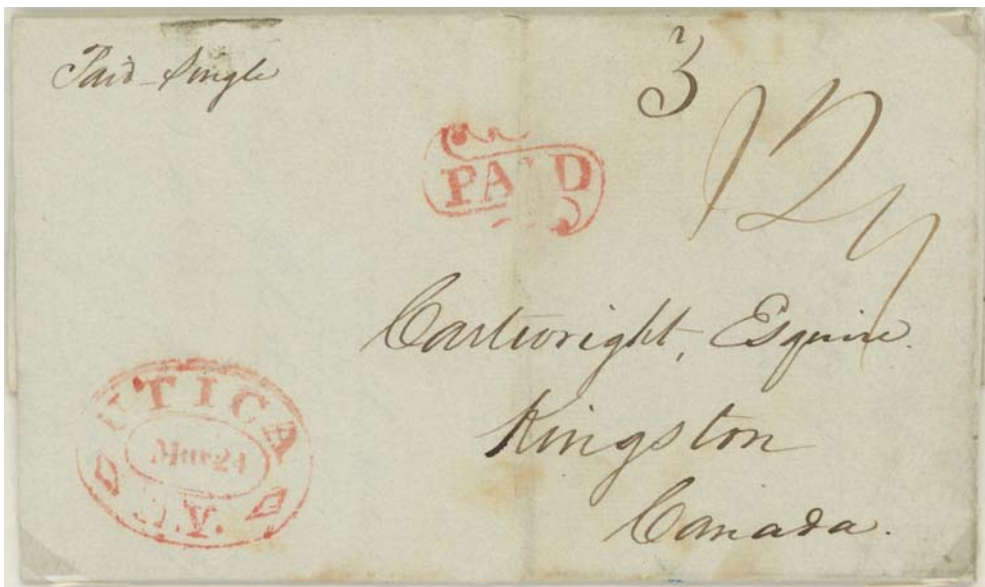 Paid - Single
3
12½
PAID
Cartwright, Esquire.
Kingston
Canada.
UTICA
Mar 24
N.Y.